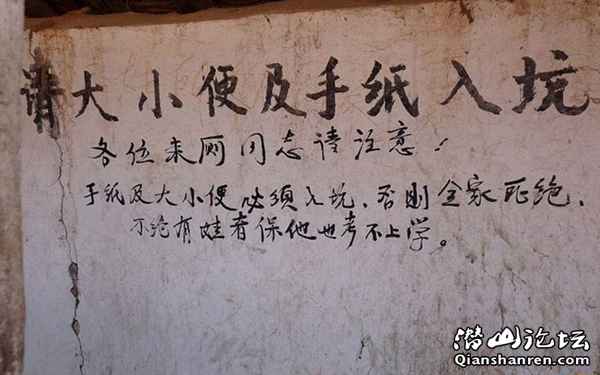 请大小便及手纸入坑
各位来厕同志请注意!
手纸及大小便必须入坑,否则全家死绝,
不绝有娃者保他也考不上学。
潜山论坛
Qianshanren.com